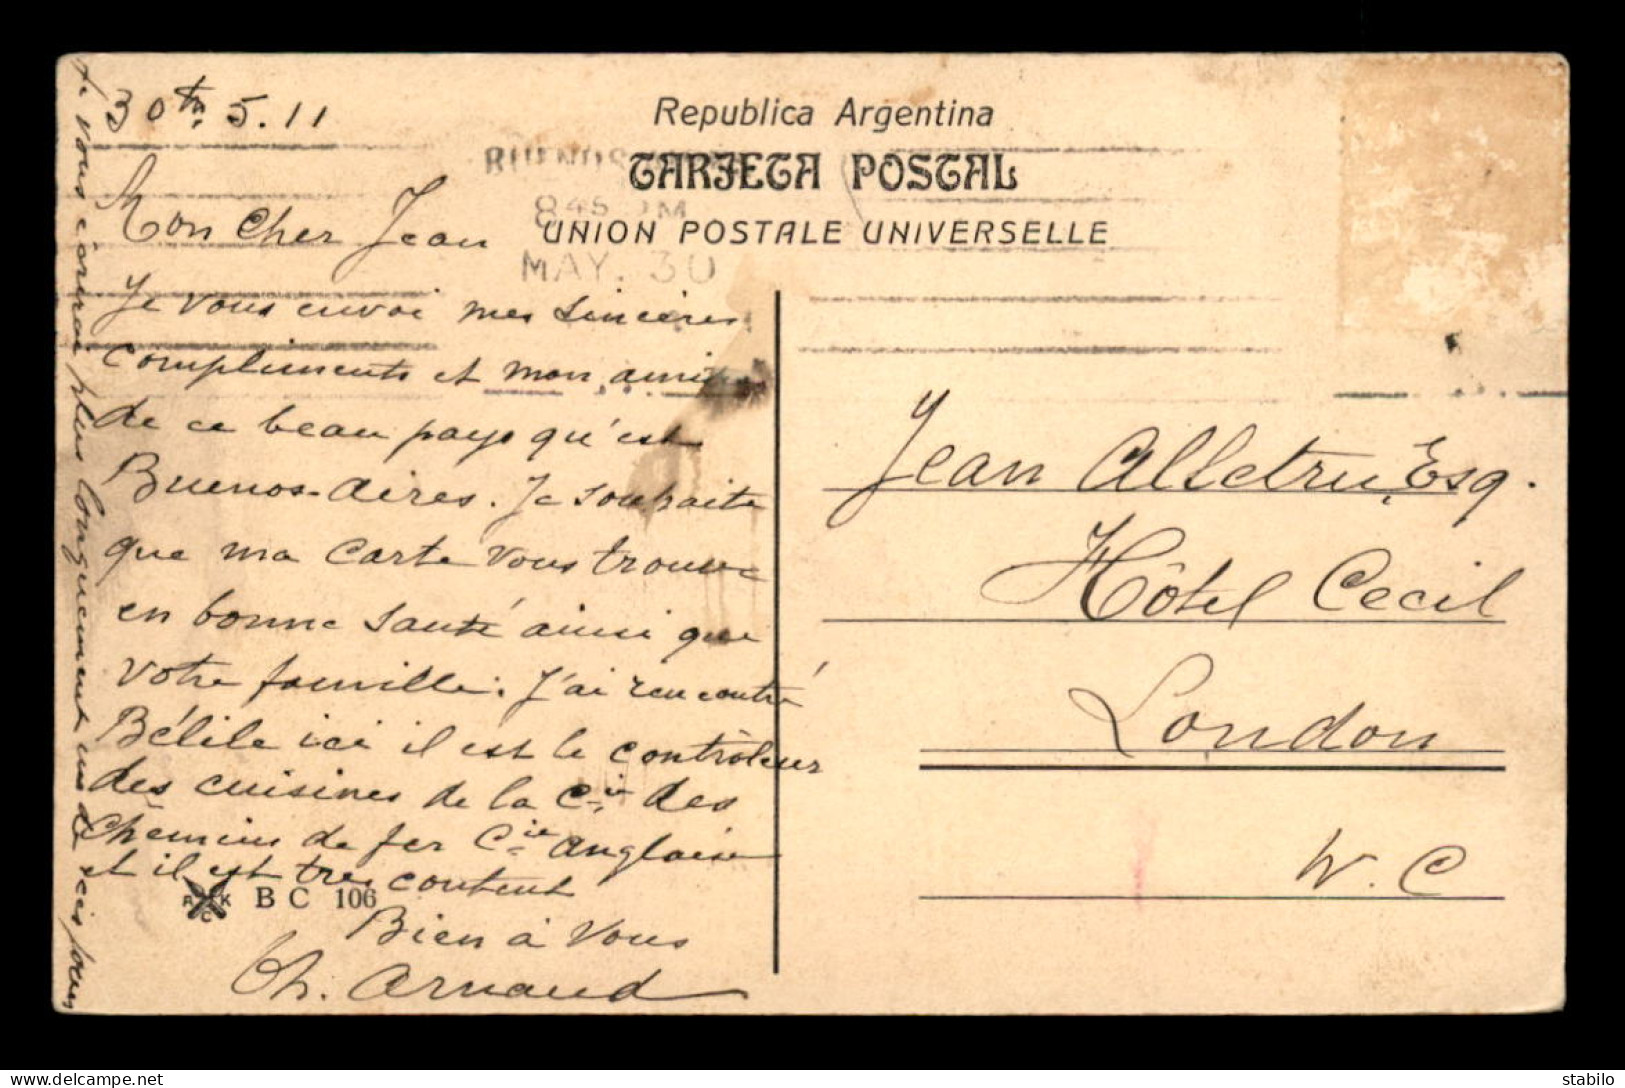 30th 5.11
Mon Cher Jean
Je vous envoi mes sincères
compliments et mon amitié
de ce beau pays qu'est
Buenos-Aires. Je souhaite
que ma carte vous trouve
en bonne santé ainsi que
votre famille. J'ai rencontré
Bélile ici il est le contrôleur
des cuisines de la Cie des
Chemins de fer Cie anglaise
et il est tres content
Bien à vous
Ch. Arnaud
Je vous écrirai plus longuement un de ces jours
R K C
B C 106
Republica Argentina
TARJETA POSTAL
UNION POSTALE UNIVERSELLE
BUENOS
8 45 PM
MAY. 30
Jean Alletru, Esq.
Hôtel Cecil
London
W. C
delcampe.net
stabilo